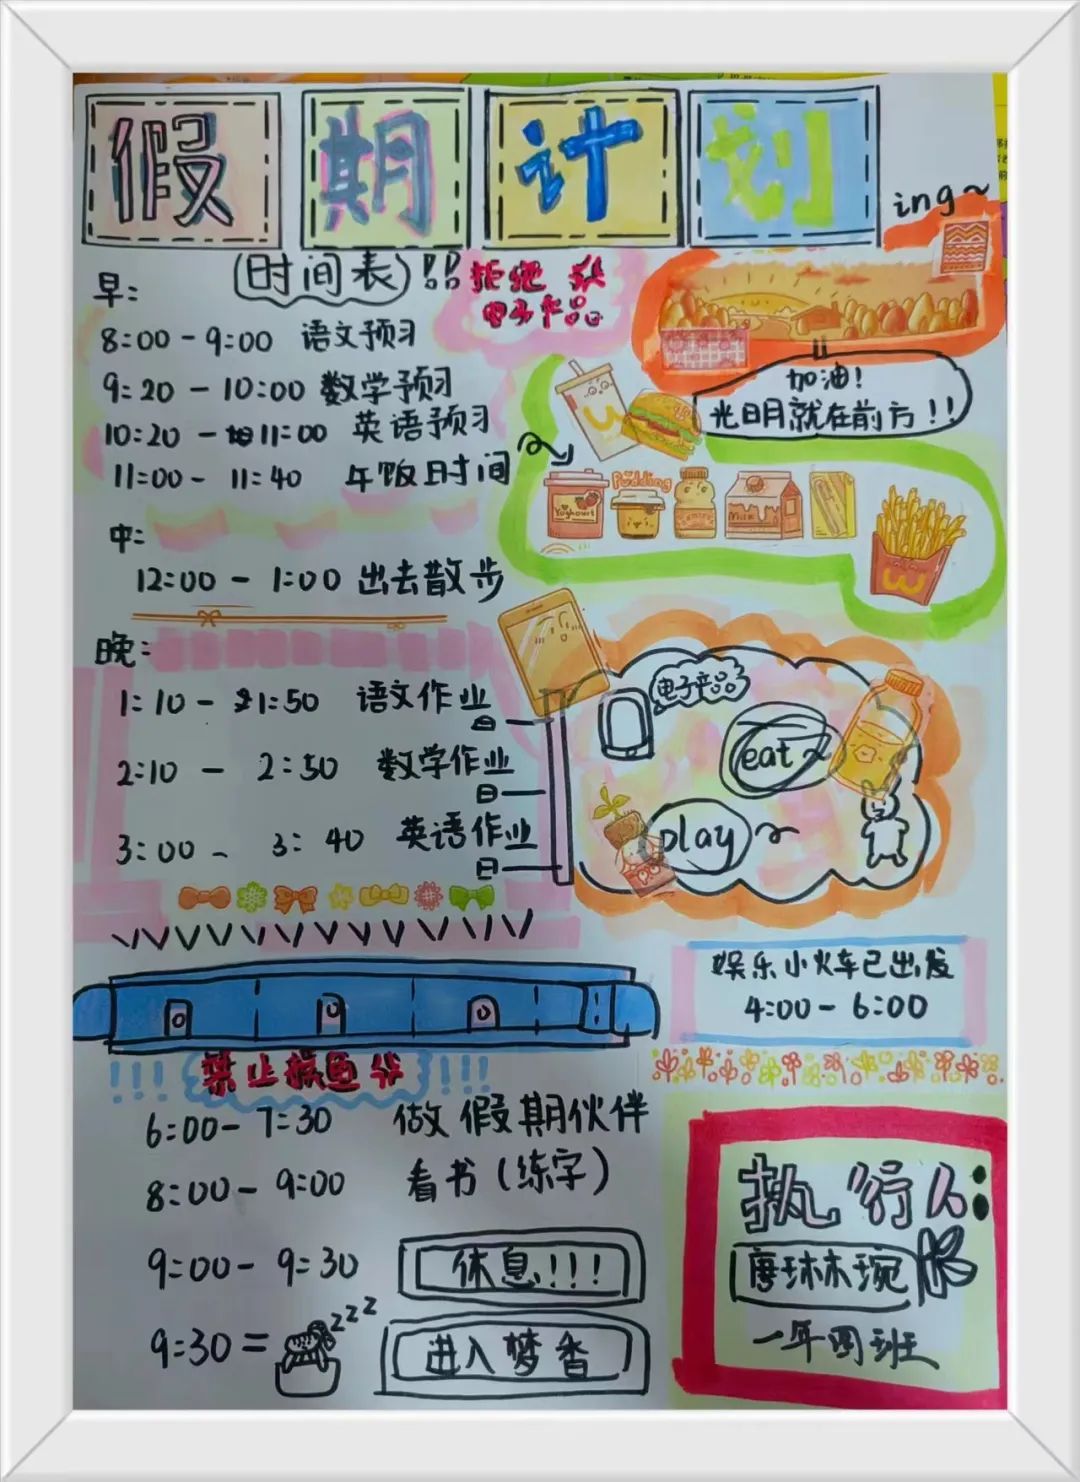 假期计划
ing~
(时间表)!!
拒绝
电子产品
早:
8:00-9:00 语文预习
9:20-10:00 数学预习
10:20-11:00 英语预习
11:00-11:40 午饭时间
加油!
光明就在前方!!
Pudding
Yoghourt
Milk
中:
12:00-1:00 出去散步
晚:
1:10-1:50 语文作业
2:10-2:50 数学作业
3:00-3:40 英语作业
电子产品
eat~
play~
娱乐小火车已出发
4:00-6:00
!!!禁止摸鱼!!!
6:00-7:30 做假期伙伴
8:00-9:00 看书(练字)
9:00-9:30 休息!!!
9:30= zzz 进入梦香
执行人:
唐琳琬
一年四班